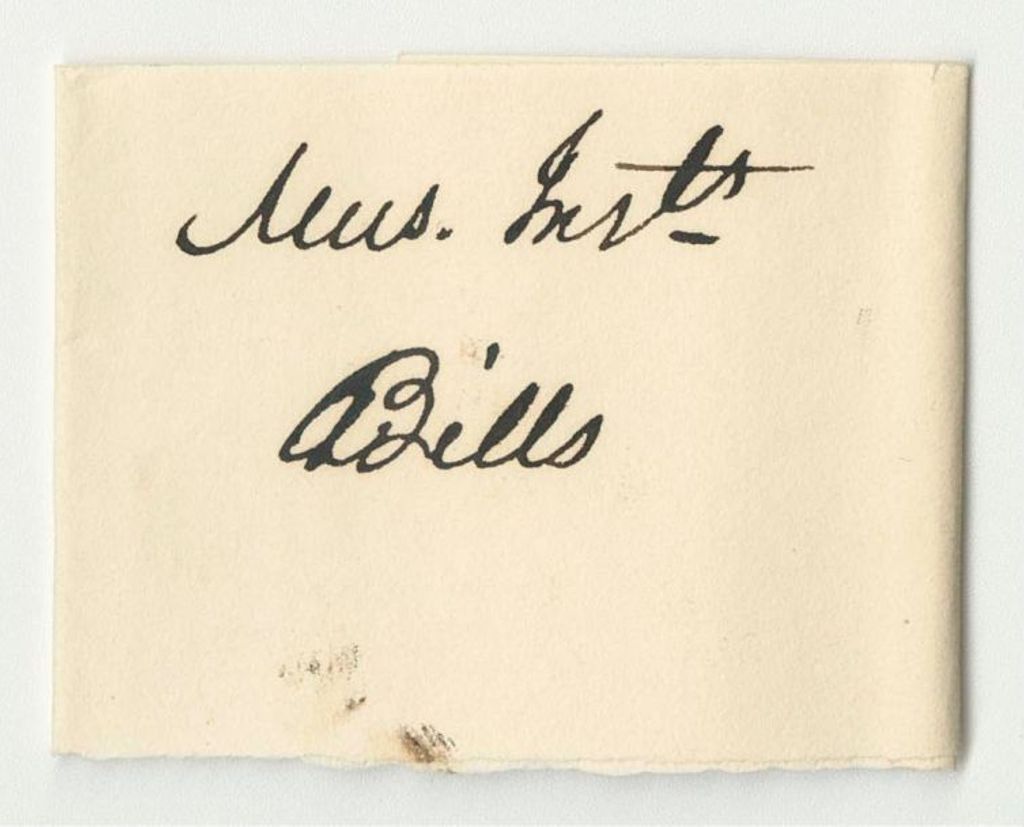 Mus. Insts
Bills